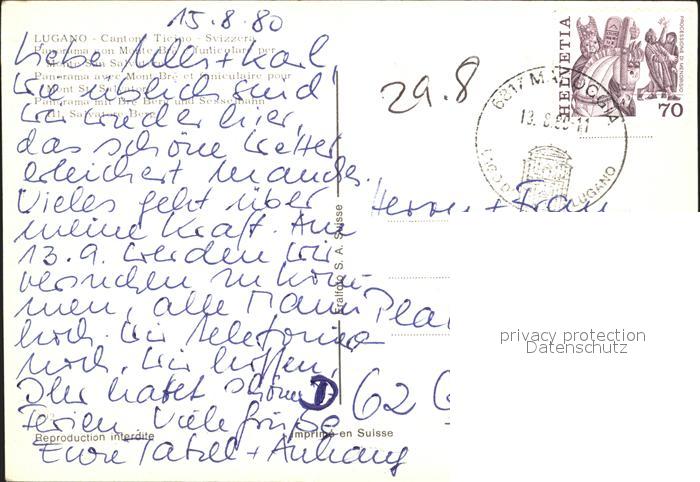 15.8.80
LUGANO - Cantone Ticino - Svizzera
Panorama con Monte Brè e funicolare per
Monte San Salvatore
Panorama avec Mont Brè et funiculaire pour
Mont St. Salvatore
Panorama mit Brè Berg und Sesselbahn
zum Salvatore Berg
Liebe + Karl,
wie üblich sind
wir wieder hier,
das schöne Wetter
erleichert manches.
Vieles geht über
meine Kraft. Am
13.9. werden wir
versuchen zu kom-
men, alle Mann
hoch. Wir telefonieren
noch. Wir hoffen,
Ihr habt schöne
Ferien. Viele Grüße
Eure + Anhang
Reproduction interdite
Imprimé en Suisse
Fralfoto S. A. Suisse
29.8
6817 MAROGGIA
13.8.80-11
LAGO DI LUGANO
HELVETIA
PROCESSIONE DI MENDRISIO
70
Herrn + Frau
D 62
privacy protection
Datenschutz